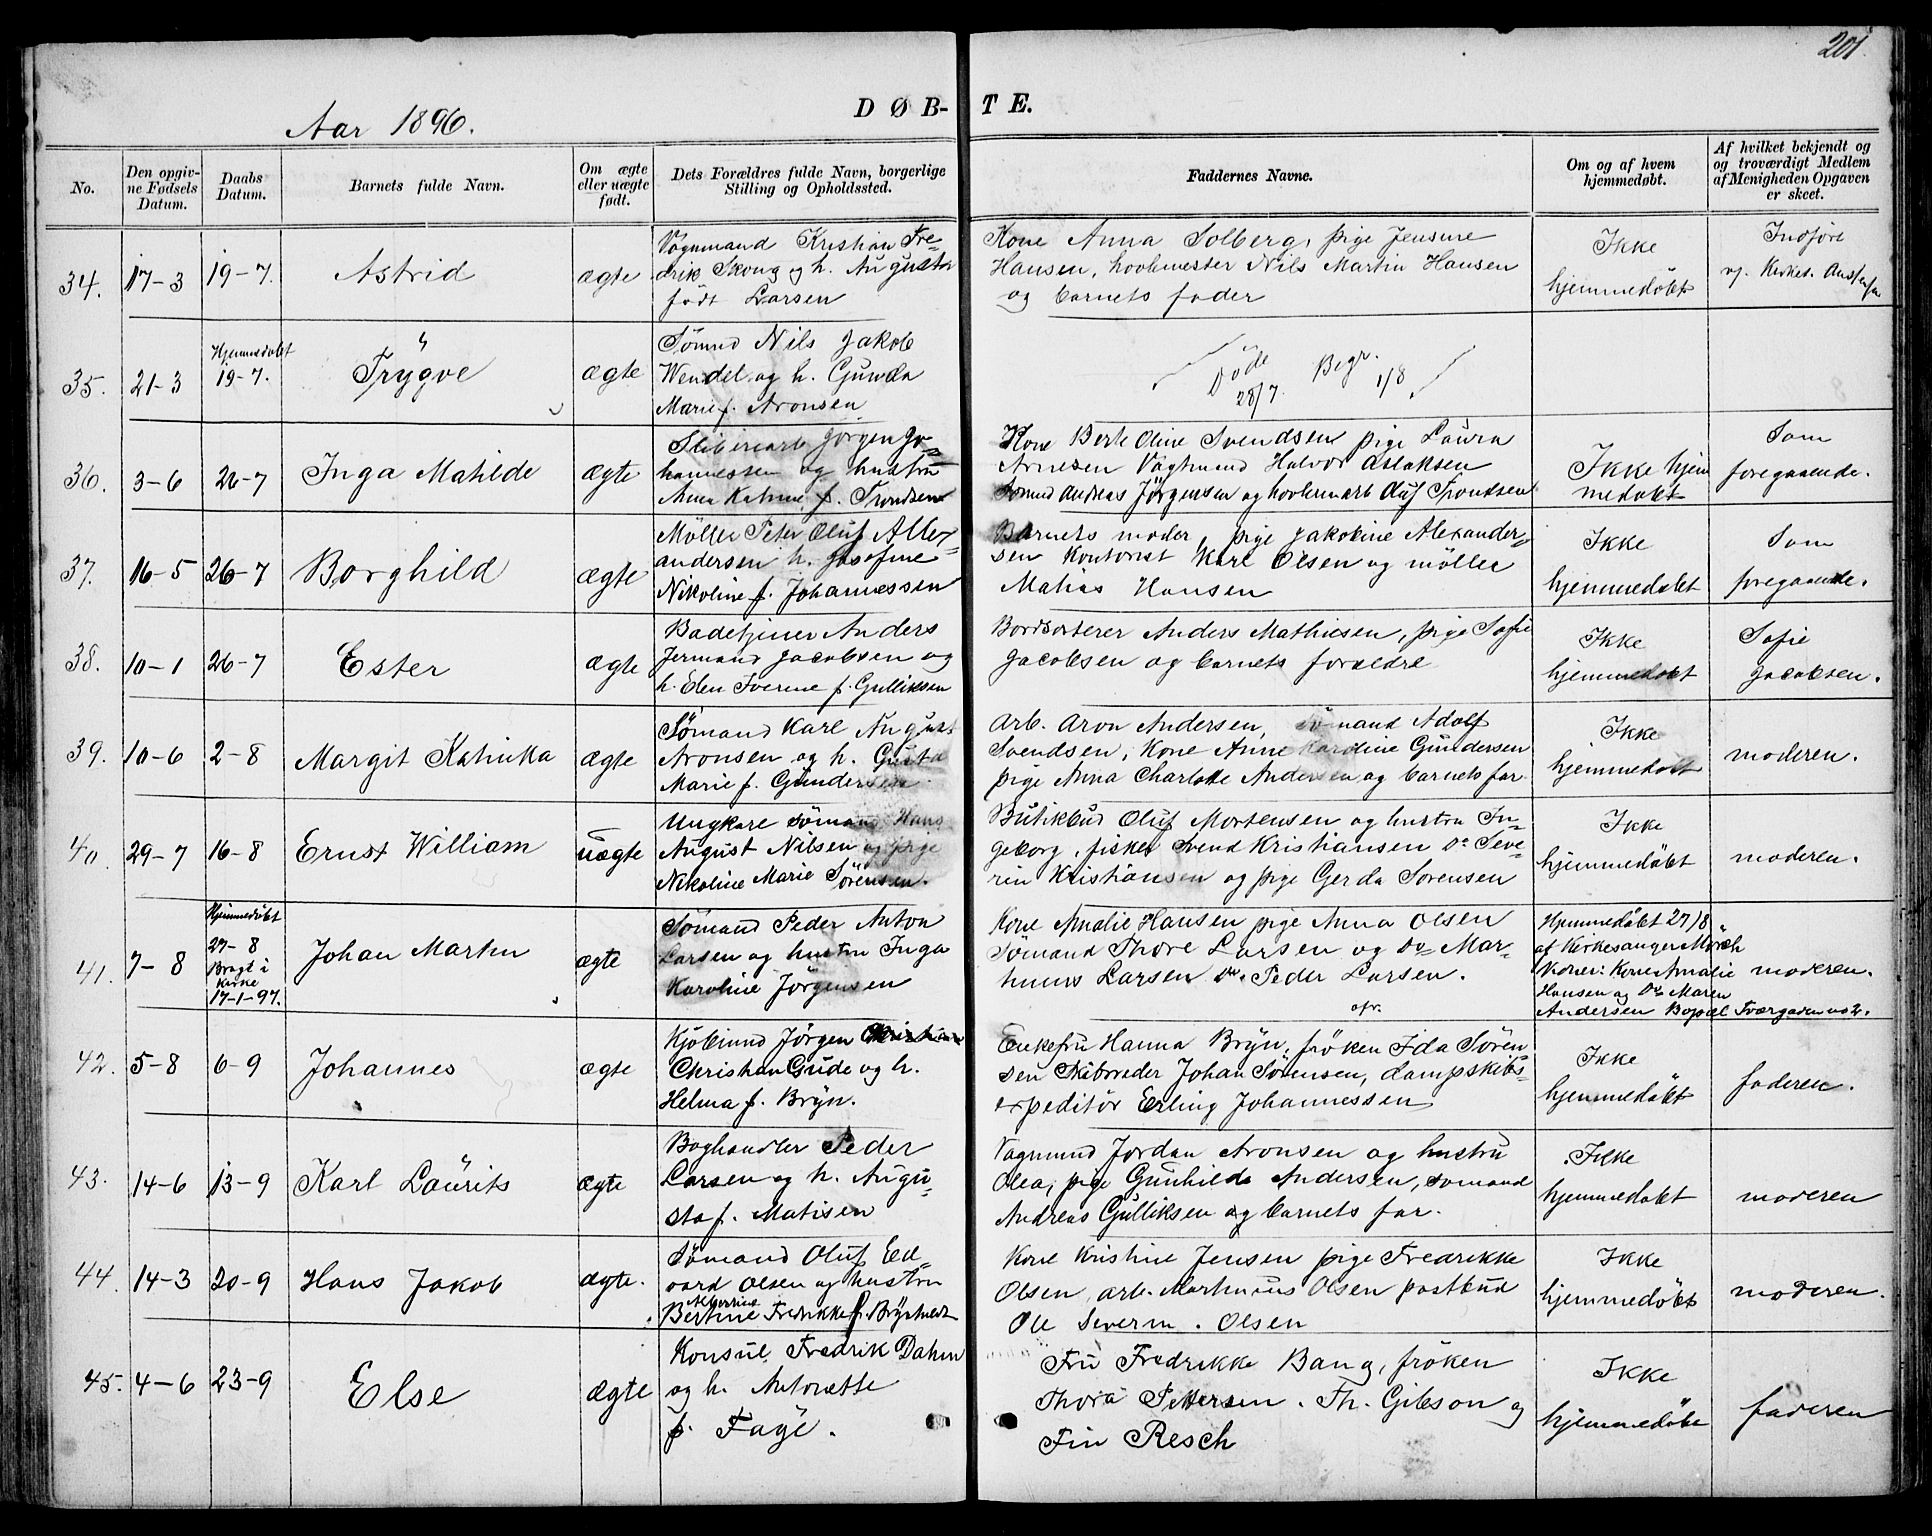 201
Aar 1896.
DØB-TE.
No.
Den opgiv-
ne Fødsels
Datum.
Daabs
Datum.
Barnets fulde Navn.
Om ægte
eller uægte
født.
Dets Forældres fulde Navn, borgerlige
Stilling og Opholdssted.
Faddernes Navne.
Om og af hvem
hjemmedøbt.
Af hvilket bekjendt og
og troværdigt Medlem
af Menigheden Opgaven
er skeet.
34. 17-3 19-7. Astrid ægte
Vognmand Kristian Fre-
drik Skoug og h. Augusta
født Larsen
Kone Anna Solberg, pige Jensine
Hansen, hovlmester Nils Martin Hansen
og barnets fader
Ikke
hjemmedøbt
Indføre
v. Kirket.
35. 21-3 Hjemmedøbt
19-7. Trygve ægte
Sømnd Nils Jakob
Wendel og h. Gunda
Marie f. Aronsen
Døde
28/7. Begr. 1/8
36. 3-6 26-7 Inga Matilde ægte
Sliberiarb Jørgen Jo-
hannessen og hustru
Anna f. Trondsen
Kone Berte Oline Svendsen pige Laura
Arnesen Vagtmand Halvor Aslaksen
Sømnd Andreas Jörgensen og hovleriarb Oluf Trondsen
Ikke hjem
medøbt
Som
foregaaende.
37. 16-5 26-7 Borghild ægte
Möller Peter Oluf Alex-
andersen h. Josefine
Nikoline f. Johannessen
Barnets moder, pige Jakobine Alexander-
sen Kontorist Karl Olsen og möller
Matias Hansen
Ikke
hjemmedøbt
Som
foregaaende.
38. 10-1 26-7 Ester ægte
Badetjener Anders
Jermand Jacobsen og
h. Elen Iverine f. Gulliksen
Bordsorterer Anders Mathiesen, pige Sofie
Jacobsen og barnets forældre
Ikke
hjemmedøbt
Sofie
Jacobsen.
39. 10-6 2-8 Margit Katinka ægte
Sømand Karl August
Aronsen og h. Gusta
Marie f. Gundersen.
Arb. Aron Andersen, sømand Adolf
Svendsen, Kone Anne Karoline Gundersen
pige Anna Charlotte Andersen og barnets far
Ikke
hjemmedøbt
moderen.
40. 29-7 16-8 Ernst William uægte
Ungkare sømand Hans
August Nilsen og pige
Nikoline Marie Sørensen.
Butikbud Oluf Mortensen og hustru In-
geborg, fisker Svend Kristiansen Do Seve-
rin Kristiansen og pige Gerda Sørensen
Ikke
hjemmedøbt
moderen.
41. 7-8 Hjemmedøbt
27-8
Bragt i
Kirke
17-1-97. Johan Martin ægte
Sømand Peder Anton
Larsen og hustru Inga
Karoline Jørgensen
Kone Amalie Hansen pige Anna Olsen
Sømand Thore Larsen og Do Mar-
tinius Larsen Do. Peder Larsen.
Hjemmedøbt 27/8
af Kirkesanger Mørch
Koner: Kone Amalie
Hansen og Do Maren
Andersen Bopæl Tværgaden no 2.
moderen.
42. 5-8 6-9 Johannes ægte
Kjøbmnd Jörgen
Christian Gude og h.
Helma f. Bryn.
Enkefru Hanna Bryn, frøken Ida Søren
sen Skibsreder Johan Sørensen, dampskibs-
expeditör Erling Johannessen
Ikke
hjemmedøbt
faderen.
43. 14-6 13-9 Karl Laurits ægte
Boghandler Peder
Larsen og h. Augu-
sta f. Matisen
Vognmnd Jordan Aronsen og hustru
Olea, pige Gunhilda Andersen, sømand
Andreas Gulliksen og barnets far.
Ikke
hjemmedøbt
moderen
44. 14-3 20-9 Hans Jakob ægte.
Sømand Oluf Ed-
vard Olsen og hustru
Bertine Fredrikke f.
Kone Kristine Jensen pige Fredrikke
Olsen, arb. Martinius Olsen postbud
Ole Severin. Olsen
Ikke
hjemmedøbt
moderen.
45. 4-6 23-9 Else ægte
Konsul Fredrik Dahm
og h. Antonette
f. Faye.
Fru Fredrikke Bang, frøken
Thora Pettersen. Th. Gibson og
Fin Resch
Ikke
hjemmedøbt
faderen